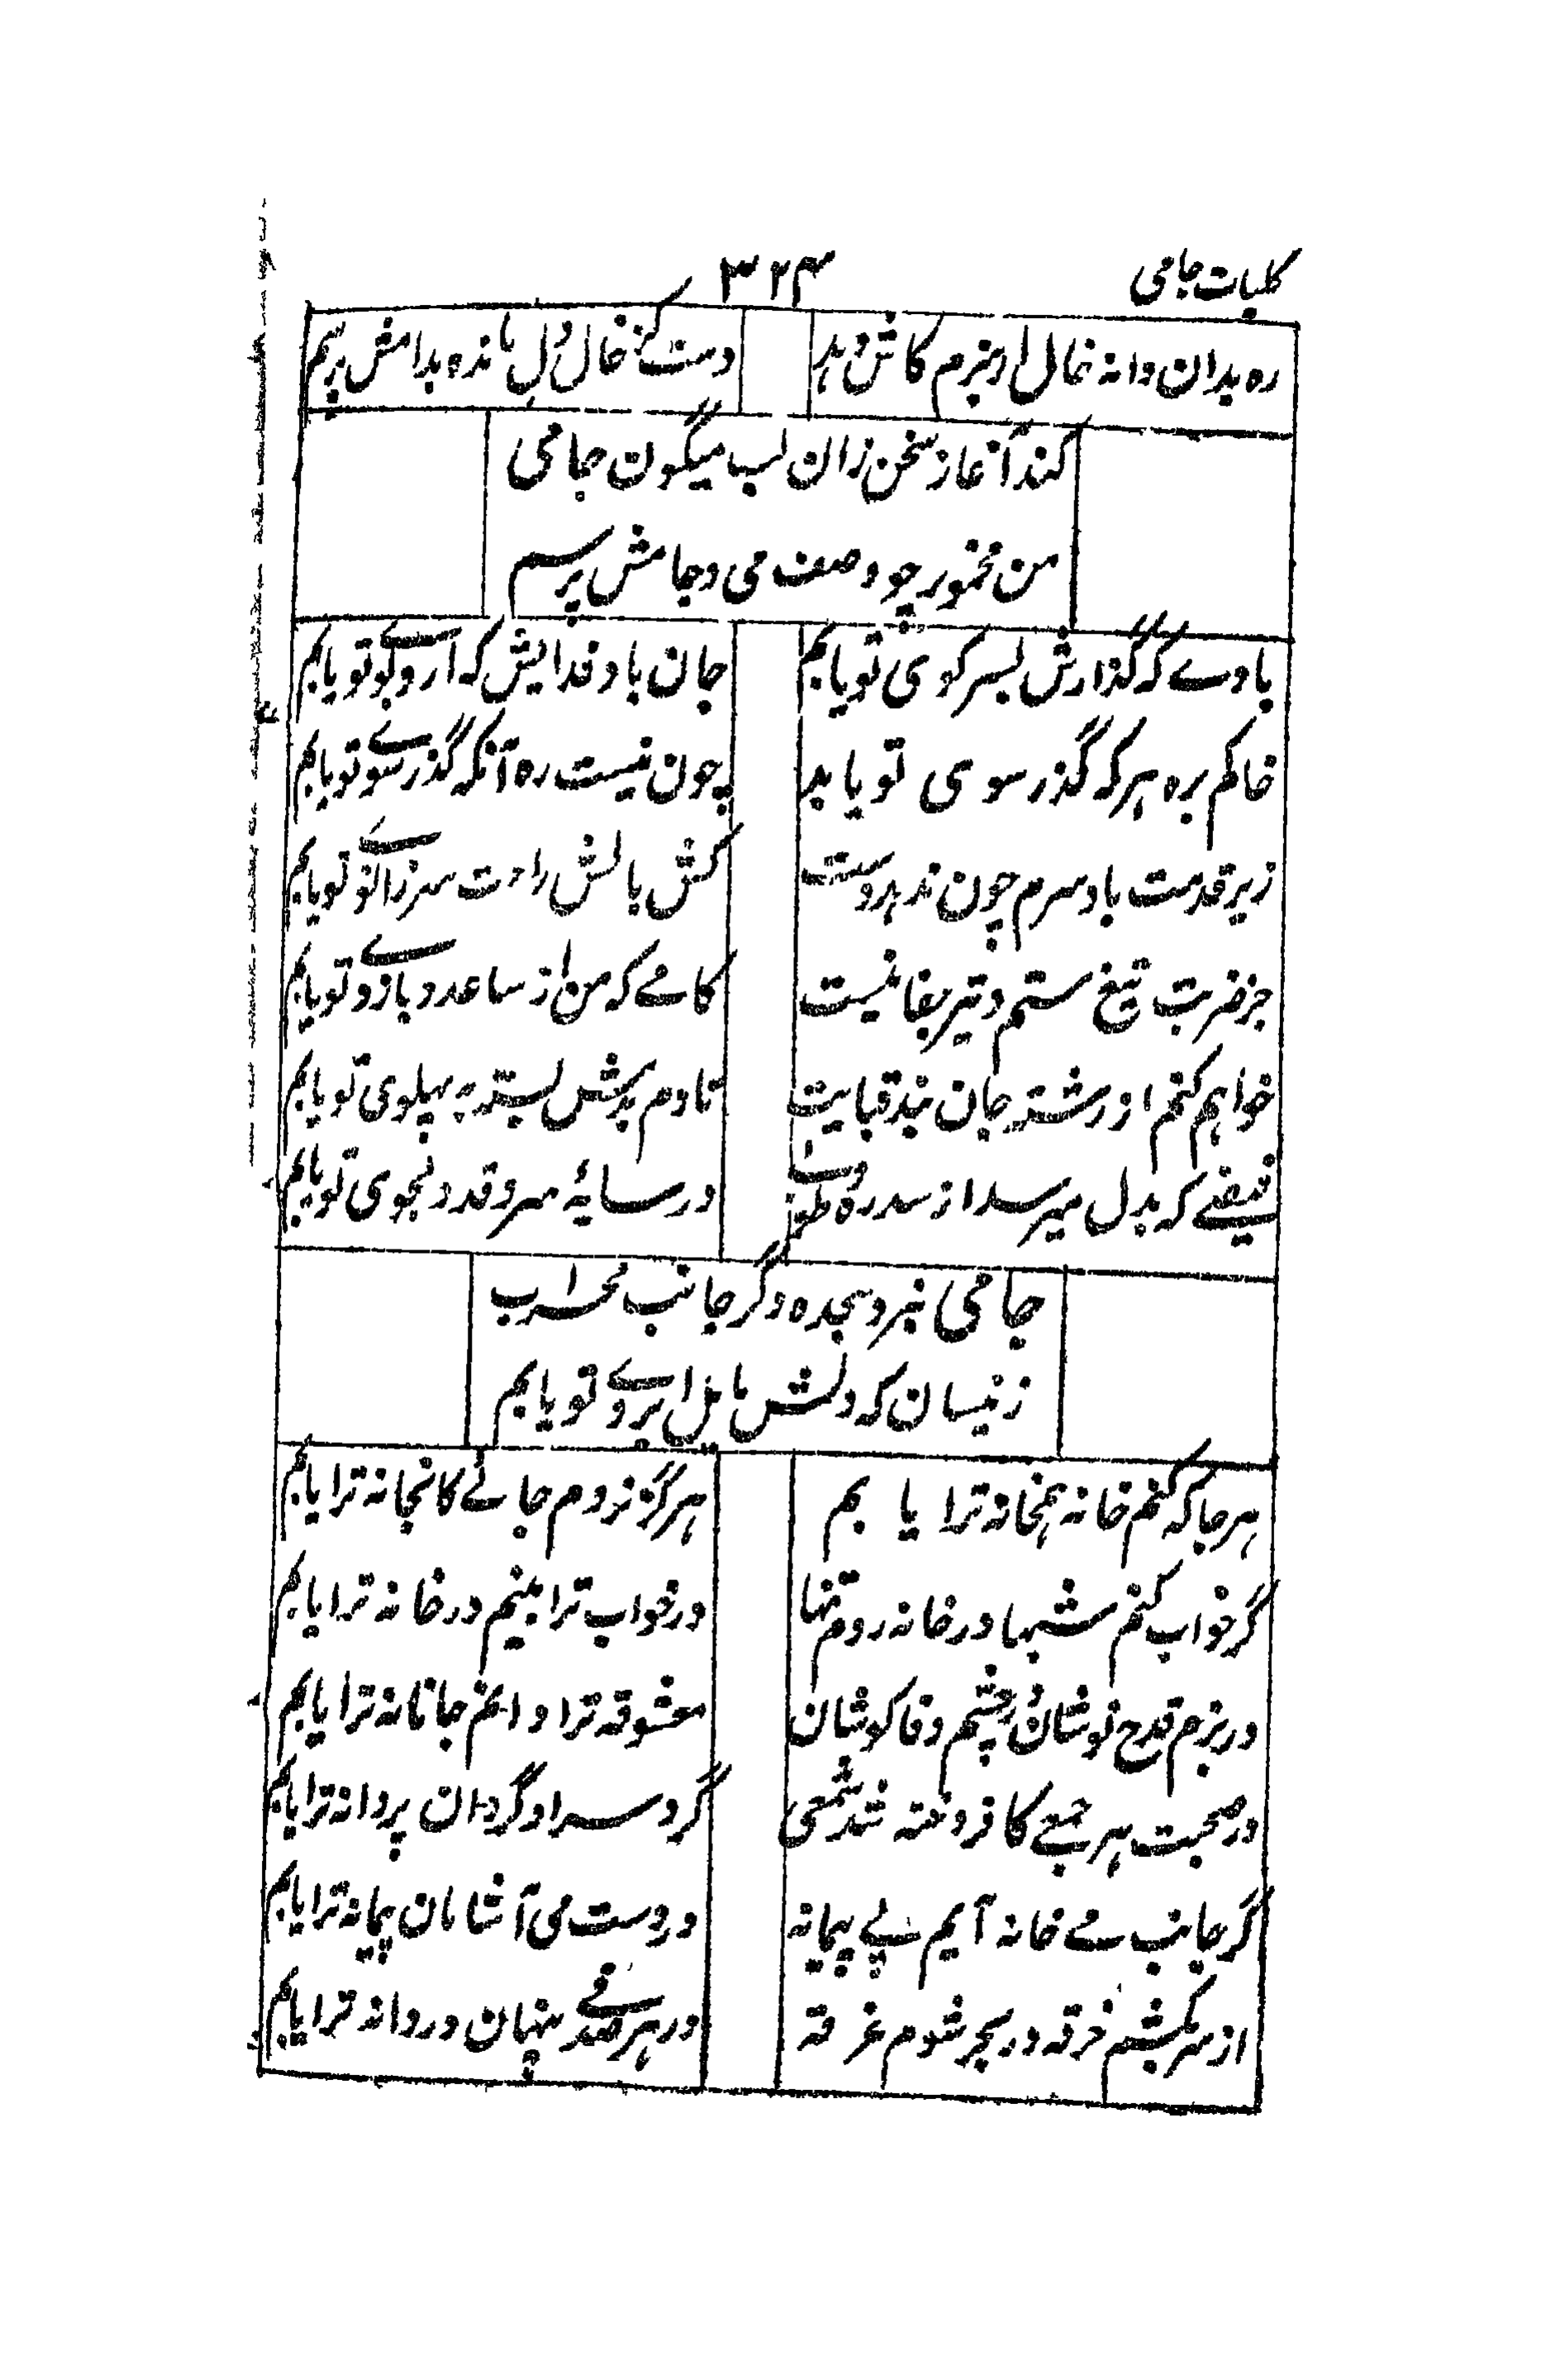 کلیات جامی
۳۲۴
ره بدان دانه خال ار نبرم کاش دهد
دست کز خال دل مانده بدامش پرسم
کند آغاز سخن زان لب میگون جامی
من مخمور چو وصف می و جامش پرسم
بادے که گذارش بسر کوی تو یابم
جان باد فدایش که ازو بوے تو یابم
خاکم بره هر که گذر سوی تو یابد
چون نیست ره آنکه گذر سوے تو یابم
زیر قدمت باد سرم چون ندهد دست
کش بالش راحت سر زانوے تو یابم
جز ضربت تیغ ستم و تیر جفا نیست
کامے که من از ساعد و بازوے تو یابم
خواهم کنم از رشته جان بند قبایت
تا دم بدمش بسته به پهلوی تو یابم
فیضے که بدل میرسد از سدره و طوبے
در سایهٔ سرو قد دلجوی تو یابم
جامی نبرد سجده دگر جانب محراب
زینسان که دلش مایل ابروے تو یابم
هر جا که کنم خانه همخانه ترا یابم
هرگز نروم جائے کانجا نه ترا یابم
گر خواب کنم شبها در خانه روم تنها
در خواب ترا بینم در خانه ترا یابم
در بزم قدح نوشان در چشم وفا کوشان
معشوقه ترا دانم جانانه ترا یابم
در صحبت هر جمعے کافروخته شد شمعی
گرد سر او گردان پروانه ترا یابم
گر جانب مے خانه آیم پے پیمانه
در دست می آشامان پیمانه ترا یابم
از سر بکشم خرقه در بحر شوم غرقه
در هر صدفے پنهان دردانه ترا یابم